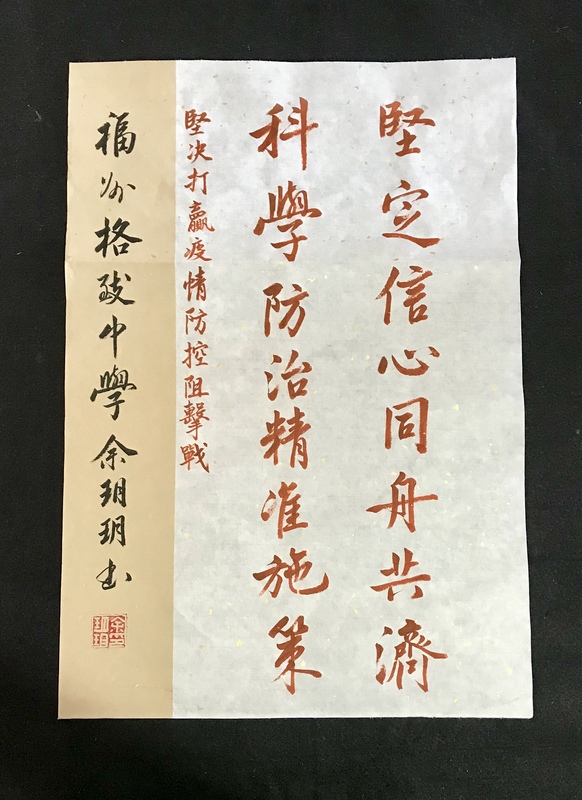 堅定信心同舟共濟
科學防治精准施策
堅决打贏疫情防控阻擊戰
福州格致中學余玥玥书